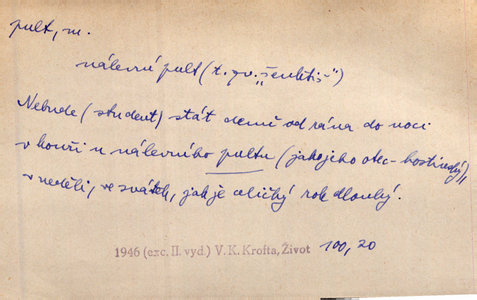 pult, m.
nálevní pult (t. zv. „šenktiš“)
Nebude (student) stát denně od rána do noci
v kouři u nálevního pultu (jako jeho otec-hostinský),
v neděli, ve svátek, jak je celičký rok dlouhý.
1946 (exc. II. vyd.) V. K. Krofta, Život 100, 20